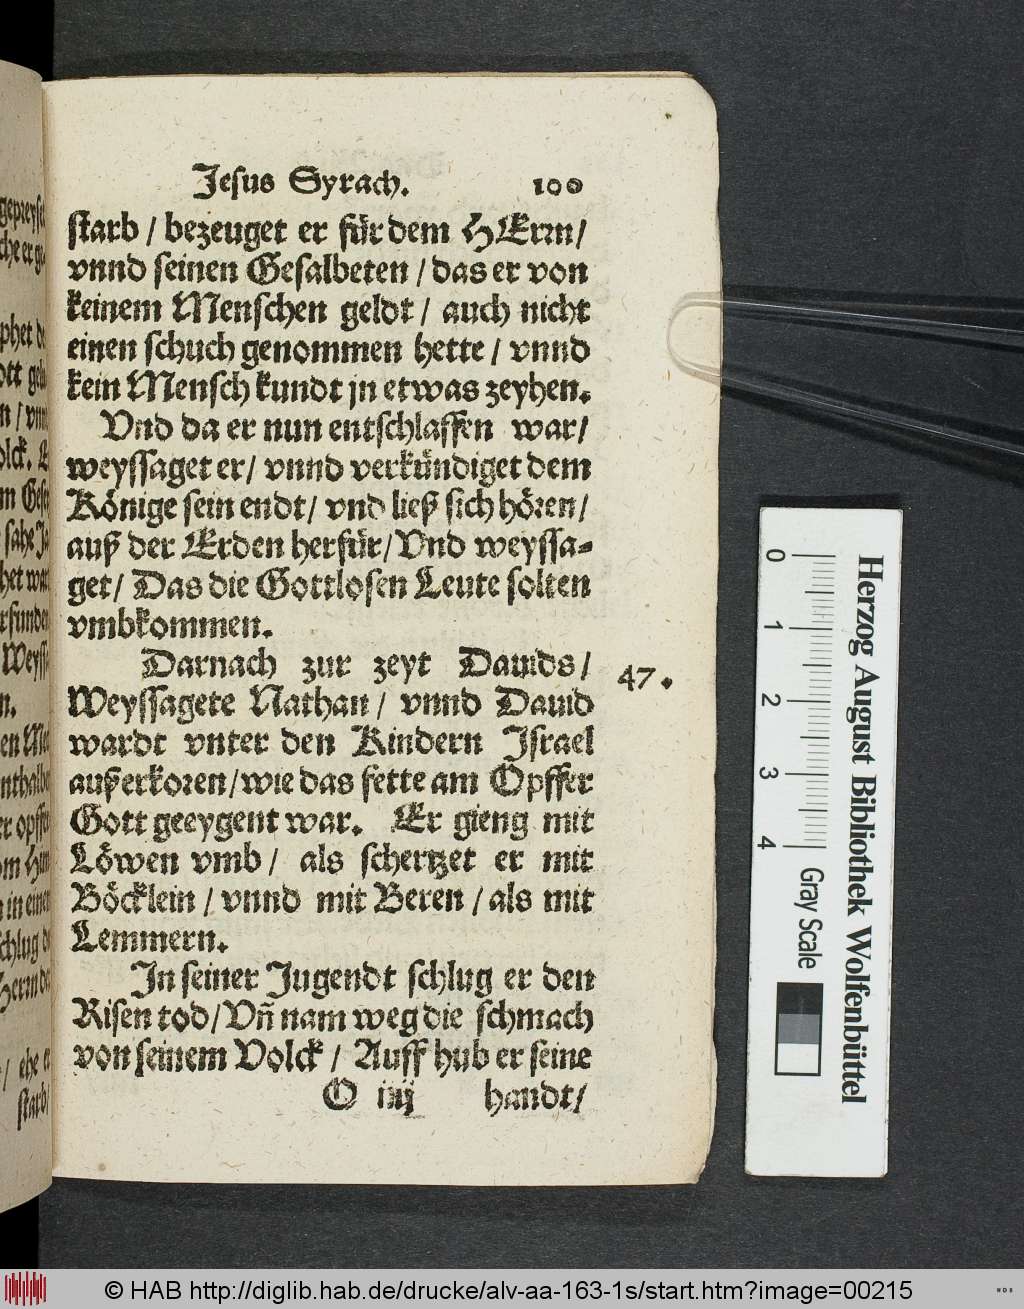 Jesus Syrach. 100
starb / bezeuget er für dem HErrn/
vnnd seinen Gesalbeten / das er von
keinem Menschen geldt / auch nicht
einen schuch genommen hette / vnnd
kein Mensch kundt jn etwas zeyhen.
Vnd da er nun entschlaffen war/
weyssaget er/ vnnd verkündiget dem
Könige sein endt/ vnd ließ sich hören/
auß der Erden herfür/ Vnd weyssa-
get/ Das die Gottlosen Leute solten
vmbkommen.
Darnach zur zeyt Dauids/ 47.
Weyssagete Nathan/ vnnd Dauid
wardt vnter den Kindern Israel
außerkoren/wie das fette am Opffer
Gott geeygent war. Er gieng mit
Löwen vmb/ als schertzet er mit
Böcklein / vnnd mit Beren / als mit
Lemmern.
In seiner Jugendt schlug er den
Risen tod/Vñ nam weg die schmach
von seinem Volck / Auff hub er seine
O iiij handt/
0 1 2 3 4
Gray Scale
Herzog August Bibliothek Wolfenbüttel
© HAB http://diglib.hab.de/drucke/alv-aa-163-1s/start.htm?image=00215